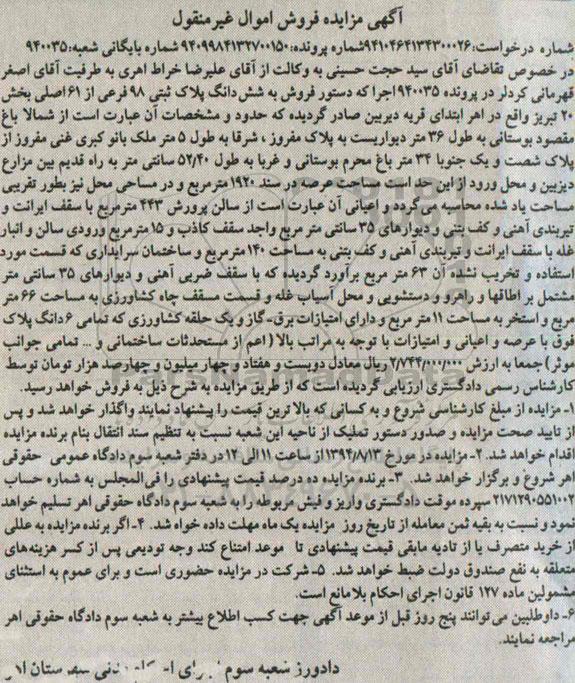 آگهی مزایده فروش اموال غیرمنقول
شماره درخواست:۹۴۱۰۴۶۴۱۳۴۳۰۰۰۲۶شماره پرونده:۹۴۰۹۹۸۴۱۳۲۷۰۰۱۵۰ شماره بایگانی شعبه:۹۴۰۰۳۵
در خصوص تقاضای آقای سید حجت حسینی به وکالت از آقای علیرضا خراط اهری به طرفیت آقای اصغر
قهرمانی کردلر در پرونده ۹۴۰۰۳۵اجرا که دستور فروش به شش دانگ پلاک ثبتی ۹۸ فرعی از ۶۱اصلی بخش
۲۰ تبریز واقع در اهر ابتدای قریه دیربین صادر گردیده که حدود و مشخصات آن عبارت است از شمالا باغ
مقصود بوستانی به طول ۳۶ متر دیواریست به پلاک مفروز ، شرقا به طول ۵ متر ملک بانو کبری غنی مفروز از
پلاک شصت و یک جنوبا ۳۴ متر باغ محرم بوستانی و غربا به طول ۵۲/۴۰ سانتی متر به راه قدیم بین مزارع
دیزبین و محل ورود از این حد است مساحت عرصه در سند ۱۹۲۰ مترمربع و در مساحی محل نیز بطور تقریبی
مساحت یاد شده محاسبه می‌گردد و اعیانی آن عبارت است از سالن پرورش ۴۴۳ مترمربع با سقف ایرانت و
تیربندی آهنی و کف بتنی و دیوارهای ۳۵ سانتی متر مربع واجد سقف کاذب و ۱۵ مترمربع ورودی سالن و انبار
غله با سقف ایرانت و تیربندی آهنی و کف بتنی به مساحت ۱۴۰ مترمربع و ساختمان سرایداری که قسمت مورد
استفاده و تخریب نشده آن ۶۳ متر مربع برآورد گردیده که با سقف ضربی آهنی و دیوارهای ۳۵ سانتی متر
مشتمل بر اطاقها و راهرو و دستشویی و محل آسیاب غله و قسمت مسقف چاه کشاورزی به مساحت ۶۶ متر
مربع و استخر به مساحت ۱۱ متر مربع و دارای امتیازات برق-گاز و یک حلقه کشاورزی که تمامی ۶ دانگ پلاک
فوق با عرصه و اعیانی و امتیازات با توجه به مراتب بالا ( اعم از مستحدثات ساختمانی و ... تمامی جوانب
موثر) جمعا به ارزش ۲/۷۴۴/۰۰۰/۰۰۰ ریال معادل دویست و هفتاد و چهار میلیون و چهارصد هزار تومان توسط
کارشناس رسمی دادگستری ارزیابی گردیده است که از طریق مزایده به شرح ذیل به فروش خواهد رسید.
۱- مزایده از مبلغ کارشناسی شروع و به کسانی که بالا ترین قیمت را پیشنهاد نمایند واگذار خواهد شد و پس
از تایید صحت مزایده و صدور دستور تملیک از ناحیه این شعبه نسبت به تنظیم سند انتقال بنام برنده مزایده
اقدام خواهد شد. ۲- مزایده در مورخ ۱۳۹۴/۸/۱۳ از ساعت ۱۱ الی ۱۲ در دفتر شعبه سوم دادگاه عمومی حقوقی
اهر شروع و برگزار خواهد شد. ۳- برنده مزایده ده درصد قیمت پیشنهادی را فی‌المجلس به شماره حساب
۲۱۷۱۲۹۰۵۵۱۰۰۲ سپرده موقت دادگستری واریز و فیش مربوطه را به شعبه سوم دادگاه حقوقی اهر تسلیم خواهد
نمود و نسبت به بقیه ثمن معامله از تاریخ روز مزایده یک ماه مهلت داده خواه شد. ۴- اگر برنده مزایده به عللی
از خرید منصرف یا از تادیه مابقی قیمت پیشنهادی تا موعد امتناع کند وجه تودیعی پس از کسر هزینه‌های
متعلقه به نفع صندوق دولت ضبط خواهد شد. ۵- شرکت در مزایده حضوری است و برای عموم به استثنای
مشمولین ماده ۱۲۷ قانون اجرای احکام بلامانع است.
۶- داوطلبین می‌توانند پنج روز قبل از موعد آگهی جهت کسب اطلاع بیشتر به شعبه سوم دادگاه حقوقی اهر
مراجعه نمایند.
دادورز شعبه سوم